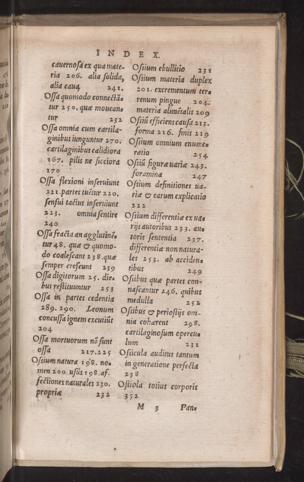 INDEX.
cauernosa ex qua mate-
ria 206. alia solida,
alia caua 241.
Ossa quomodo connectã-
tur 250. quæ moueantur
tur 252
Ossa omnia cum cartila-
ginibus iunguntur 270.
cartilaginibus calidiora
167. pilis ne sicciora
170
Ossa flexioni inseruiunt
221. partes tuetur 220.
sensui tactus inseruiunt
223. omnia sentire
240
Ossa fracta an agglutinẽ-
tur 48. qua & quomo-
do coalescant 238. quæ
semper cresunt 239
Ossa digitorum 25. die-
bus restituuntur 253
Ossa in partes cedentia
289. 290. Leonum
concussa ignem excutiũt
204
Ossa mortuorum nõ sunt
ossa 217. 225
Ossium natura 198. no-
men 200. usus 198. af-
fectiones naturales 230.
propriæ 232
Ossium ebullitio 231
Ossium materia duplex
201. excrementum ter-
renum pingue 204.
materia aluntalis 209
Ossiũ efficiens causa 213.
forma 216. finis 219
Ossium omnium enume-
ratio 254
Ossiũ figuræ uariæ 243.
foramina 247
Ossium definitiones ua-
riæ & earum explicatio
222
Ossium differentia ex ua-
rijs autoribus 233. au-
toris sententia 237.
differentiæ non natura-
les 253. ab acciden-
tibus 249
Ossibus quæ partes con-
nascantur 246. quibus
medulla 252
Ossibus & periostijs om-
nia cohærent 298.
cartilaginosum opercu-
lum 231
Ossicula auditus tantum
in generatione perfecta
238
Ostiola totius corporis
352
M 3 Pan-